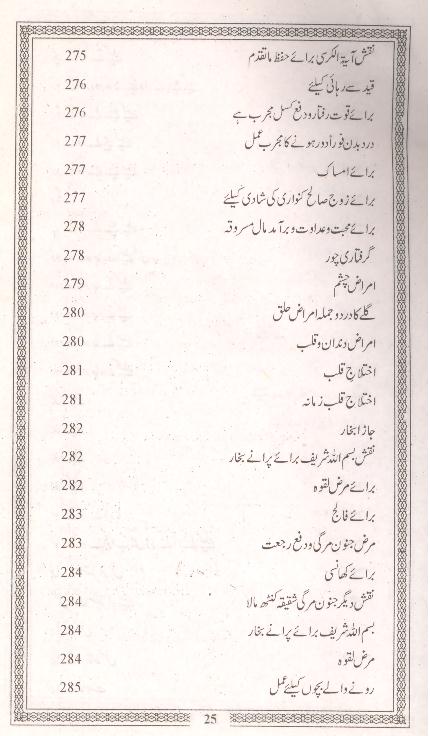 نقش آیۃ الکرسی برائے حفظ ماتقدم 275
قید سے رہائی کیلئے 276
برائے قوت رفتار و دفع کسل مجرب ہے 276
درد بدن فوراً دور ہونے کا مجرب عمل 277
برائے امساک 277
برائے زوج صالح کنواری کی شادی کیلئے 277
برائے محبت و عداوت و برآمد مال مسروقہ 278
گرفتاری چور 278
امراض چشم 279
گلے کا درد و جملہ امراض حلق 280
امراض دندان و قلب 280
اختلاج قلب 281
اختلاج قلب زمانہ 281
جاڑا بخار 282
نقش بسم اللہ شریف برائے پرانے بخار 282
برائے مرض لقوہ 282
برائے فالج 283
مرض جنون مرگی و دفع رجعت 283
برائے کھانسی 284
نقش دیگر جنون مرگی شقیقہ کنٹھ مالا 284
بسم اللہ شریف برائے پرانے بخار 284
مرض لقوہ 284
رونے والے بچوں کیلئے عمل 285
25